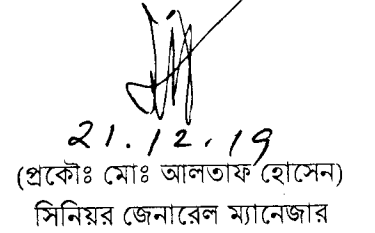 21.12.19
(প্রকৌঃ মোঃ আলতাফ হোসেন)
সিনিয়র জেনারেল ম্যানেজার